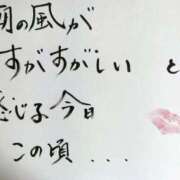 朝の風が
すがすがしい と
感じる今日
この頃...